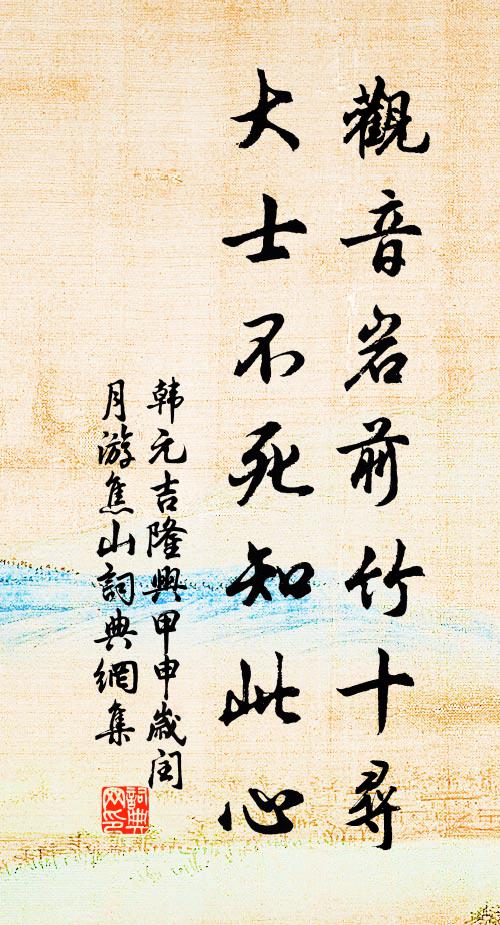 觀音岩前竹十尋
大士不死知此心
韩元吉隆興甲申歲閏
月游焦山詞典網集
詞典
网印